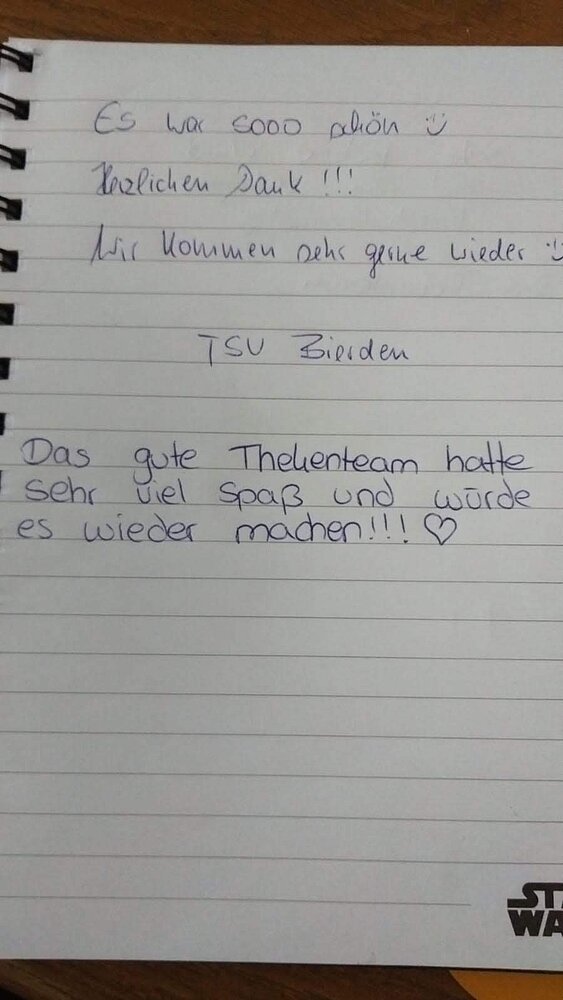 Es war sooo schön ☺
Herzlichen Dank !!!
Wir kommen sehr gerne wieder ☺
TSV Bierden
Das gute Thekenteam hatte
sehr viel Spaß und würde
es wieder machen!!! ♡
STA
WA